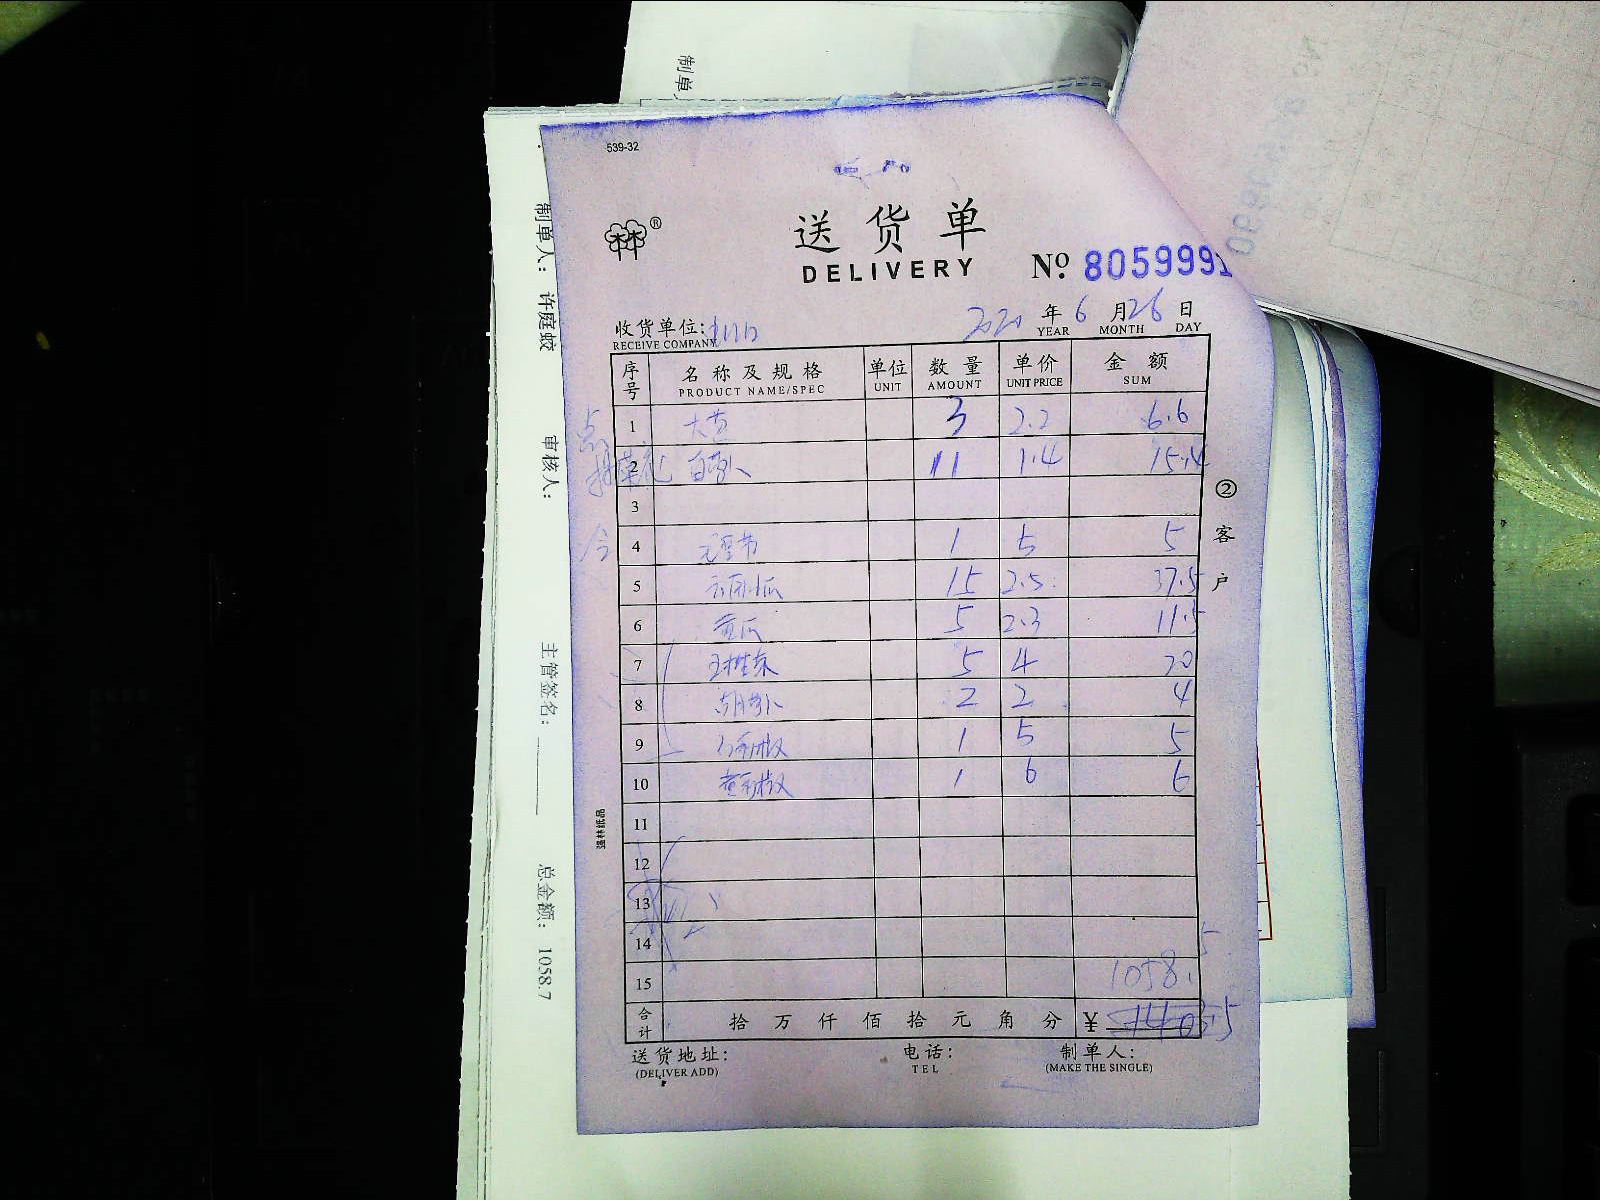 制单
539-32
®
送货单
DELIVERY
№ 8059991
制单人： 许庭蛟
审核人：
主管签名：
总金额： 1058.7
2020 年 6 月 26 日
YEAR MONTH DAY
收货单位:
RECEIVE COMPANY
序号 名称及规格 单位 数量 单价 金额
PRODUCT NAME/SPEC UNIT AMOUNT UNIT PRICE SUM
1 3 2.2 6.6
2 白萝卜 11 1.4 15.4
3
4 1 5 5
5 15 2.5 37.5
6 黄瓜 5 2.3 11.5
7 5 4 20
8 胡萝卜 2 2 4
9 1 5 5
10 黄彩椒 1 6 6
11
12
13
14
15 1058.5
合计 拾 万 仟 佰 拾 元 角 分 ¥
②客户
强林纸品
送货地址: 电话: 制单人:
(DELIVER ADD) TEL (MAKE THE SINGLE)